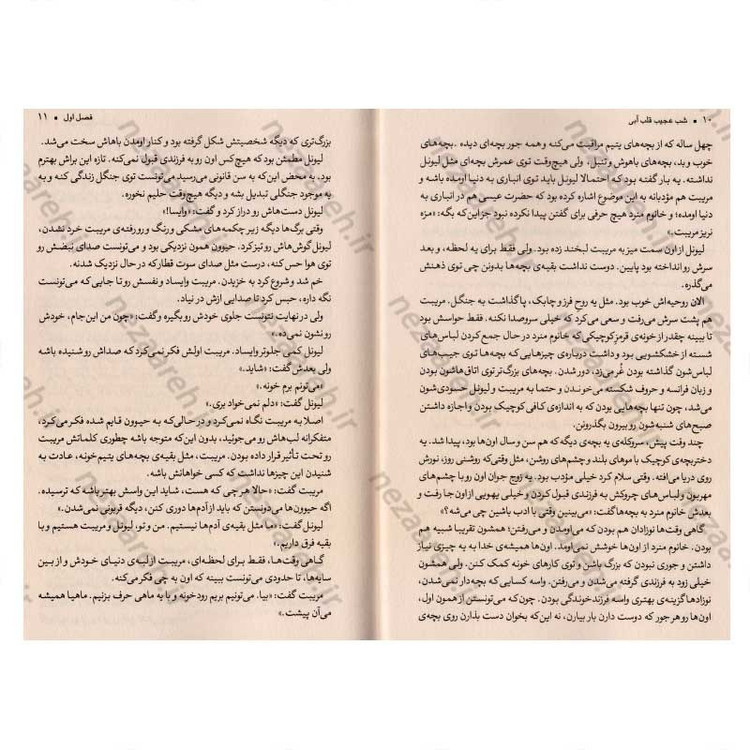 ۱۰ • شب عجیب قلب آبی
چهل ساله که از بچه‌های یتیم مراقبت می‌کنه و همه جور بچه‌ای دیده. بچه‌های
خوب و بد، بچه‌های باهوش و تنبل، ولی هیچ‌وقت توی عمرش بچه‌ای مثل لیونل
نداشته. یه بار گفته بود که احتمالا لیونل باید توی انباری به دنیا اومده باشه و
مریبت هم مؤدبانه به این موضوع اشاره کرده بود که حضرت عیسی هم در انباری به
دنیا اومده؛ و خانوم منرد هیچ حرفی برای گفتن پیدا نکرده نبود جز این‌که بگه: «مزه
نریز مریبت.»
لیونل از اون سمت میز به مریبت لبخند زده بود. ولی فقط برای یه لحظه، و بعد
سرش رو انداخته بود پایین. دوست نداشت بقیه‌ی بچه‌ها بدونن چی توی ذهنش
می‌گذره.
الان روحیه‌اش خوب بود. مثل یه روحِ فرز و چابک، پا گذاشت به جنگل. مریبت
هم پشت سرش می‌رفت و سعی می‌کرد که خیلی سروصدا نکنه. فقط حواسش بود
تا ببینه چقدر از خونه‌ی قرمز کوچیکی که خانوم منرد در حال جمع کردن لباس‌های
شسته از خشکشویی بود و داشت درباره‌ی چیزهایی که بچه‌ها توی جیب‌های
لباس‌شون گذاشته بودن غُر می‌زد، دور شدن. بچه‌های بزرگ‌تر توی اتاق‌هاشون بودن
و زبان فرانسه و حروف شکسته می‌خوندن و حتما به مریبت و لیونل حسودی‌شون
می‌شد، چون تنها بچه‌هایی بودن که به اندازه‌ی کافی کوچیک بودن و اجازه داشتن
صبح‌های شنبه‌شون رو بیرون بگذرونن.
چند وقت پیش، سروکله‌ی یه بچه‌ی دیگه که هم سن و سال اون‌ها بود، پیدا شد. یه
دختربچه‌ی کوچیک با موهای بلند و چشم‌های روشن، مثل وقتی که روشنی روز، نورش
روی دریا می‌افته. وقتی سلام کرد خیلی مؤدب بود. یه زوج جوان اون رو با چشم‌های
مهربون و لباس‌های چروکش به فرزندی قبول کردن و خیلی یهویی از اون جا رفت و
بعدش خانوم منرد به بچه‌ها گفت: «می‌بینین وقتی با ادب باشین چی می‌شه؟»
گاهی وقت‌ها نوزادان هم بودن که می‌اومدن و می‌رفتن؛ همشون تقریبا شبیه هم
بودن. خانوم منرد هیچ از اون‌ها خوشش نمی‌اومد. اون‌ها همیشه‌ی خدا به یه چیزی نیاز
داشتن و جوری نبودن که بزرگ باشن و توی کارهای خونه کمک کنن. ولی همشون
خیلی زود به فرزندی گرفته می‌شدن و می‌رفتن. واسه کسایی که بچه‌دار نمی‌شدن،
نوزادها گزینه‌ی بهتری واسه فرزندخوندگی بودن. چون‌که می‌تونستن از همون اول،
اون‌ها رو هر جور که دوست دارن بار بیارن، نه این‌که بخوان دست بذارن روی بچه‌ی
فصل اول • ۱۱
بزرگ‌تری که دیگه شخصیتش شکل گرفته بود و کنار اومدن باهاش سخت می‌شد.
لیونل مطمئن بود که هیچ‌کس اون رو به فرزندی قبول نمی‌کنه. تازه این براش بهترم
بود، به محض این‌که به سن قانونی می‌رسید می‌تونست توی جنگل زندگی کنه و به
یه موجود جنگلی تبدیل بشه و دیگه هیچ‌وقت حلیم نخوره.
لیونل دست‌هاش رو دراز کرد و گفت: «وایسا!»
وقتی برگ‌ها دیگه زیر چکمه‌های مشکی و رنگ و رورفته‌ی مریبت خرد نشدن،
لیونل گوش‌هاش رو تیز کرد. حیوون همون نزدیکی بود و می‌تونست صدای نبضش رو
توی هوا حس کنه، درست مثل صدای سوت قطار که در حال نزدیک شدنه.
خم شد و شروع کرد به خزیدن. مریبت وایساد و نفسش رو تا جایی که می‌تونست
نگه داره، حبس کرد تا صدایی ازش در نیاد.
ولی در نهایت نتونست جلوی خودش رو بگیره و گفت: «چون من این‌جام، خودش
رو نشون نمی‌ده.»
لیونل کمی جلوتر وایساد. مریبت اولش فکر نمی‌کرد که صداش رو شنیده باشه
ولی بعدش گفت: «شاید.»
«می‌تونم برم خونه.»
لیونل گفت: «دلم نمی‌خواد بری.»
اصلا به مریبت نگاه نمی‌کرد و در حالی‌که به حیوون قایم شده فکر می‌کرد،
متفکرانه لب‌هاش رو می‌جوئید، بدون این‌که متوجه باشه چطوری کلماتش مریبت
رو تحت تأثیر قرار داده بودن. مریبت، مثل بقیه‌ی بچه‌های یتیم خونه، عادت به
شنیدن این چیزها نداشت که کسی خواهانش باشه.
مریبت گفت: «حالا هر چی که هست، شاید این واسش بهتر باشه که ترسیده.
اگه حیوون‌ها می‌تونستن که باید از آدم‌ها دوری کنن، دیگه قربونی نمی‌شدن.»
لیونل گفت: «ما مثل بقیه‌ی آدم‌ها نیستیم. من و تو، لیونل و مریبت هستیم و با
بقیه فرق داریم.»
گاهی وقت‌ها، فقط برای لحظه‌ای، مریبت از لبه‌ی دنیای خودش و از بین
سایه‌ها، تا حدودی می‌تونست ببینه که اون به چی فکر می‌کنه.
مریبت گفت: «بیا. می‌تونیم بریم رودخونه و با یه ماهی حرف بزنیم. ماهیا همیشه
می‌آن پیشت.»
nezaareh.ir